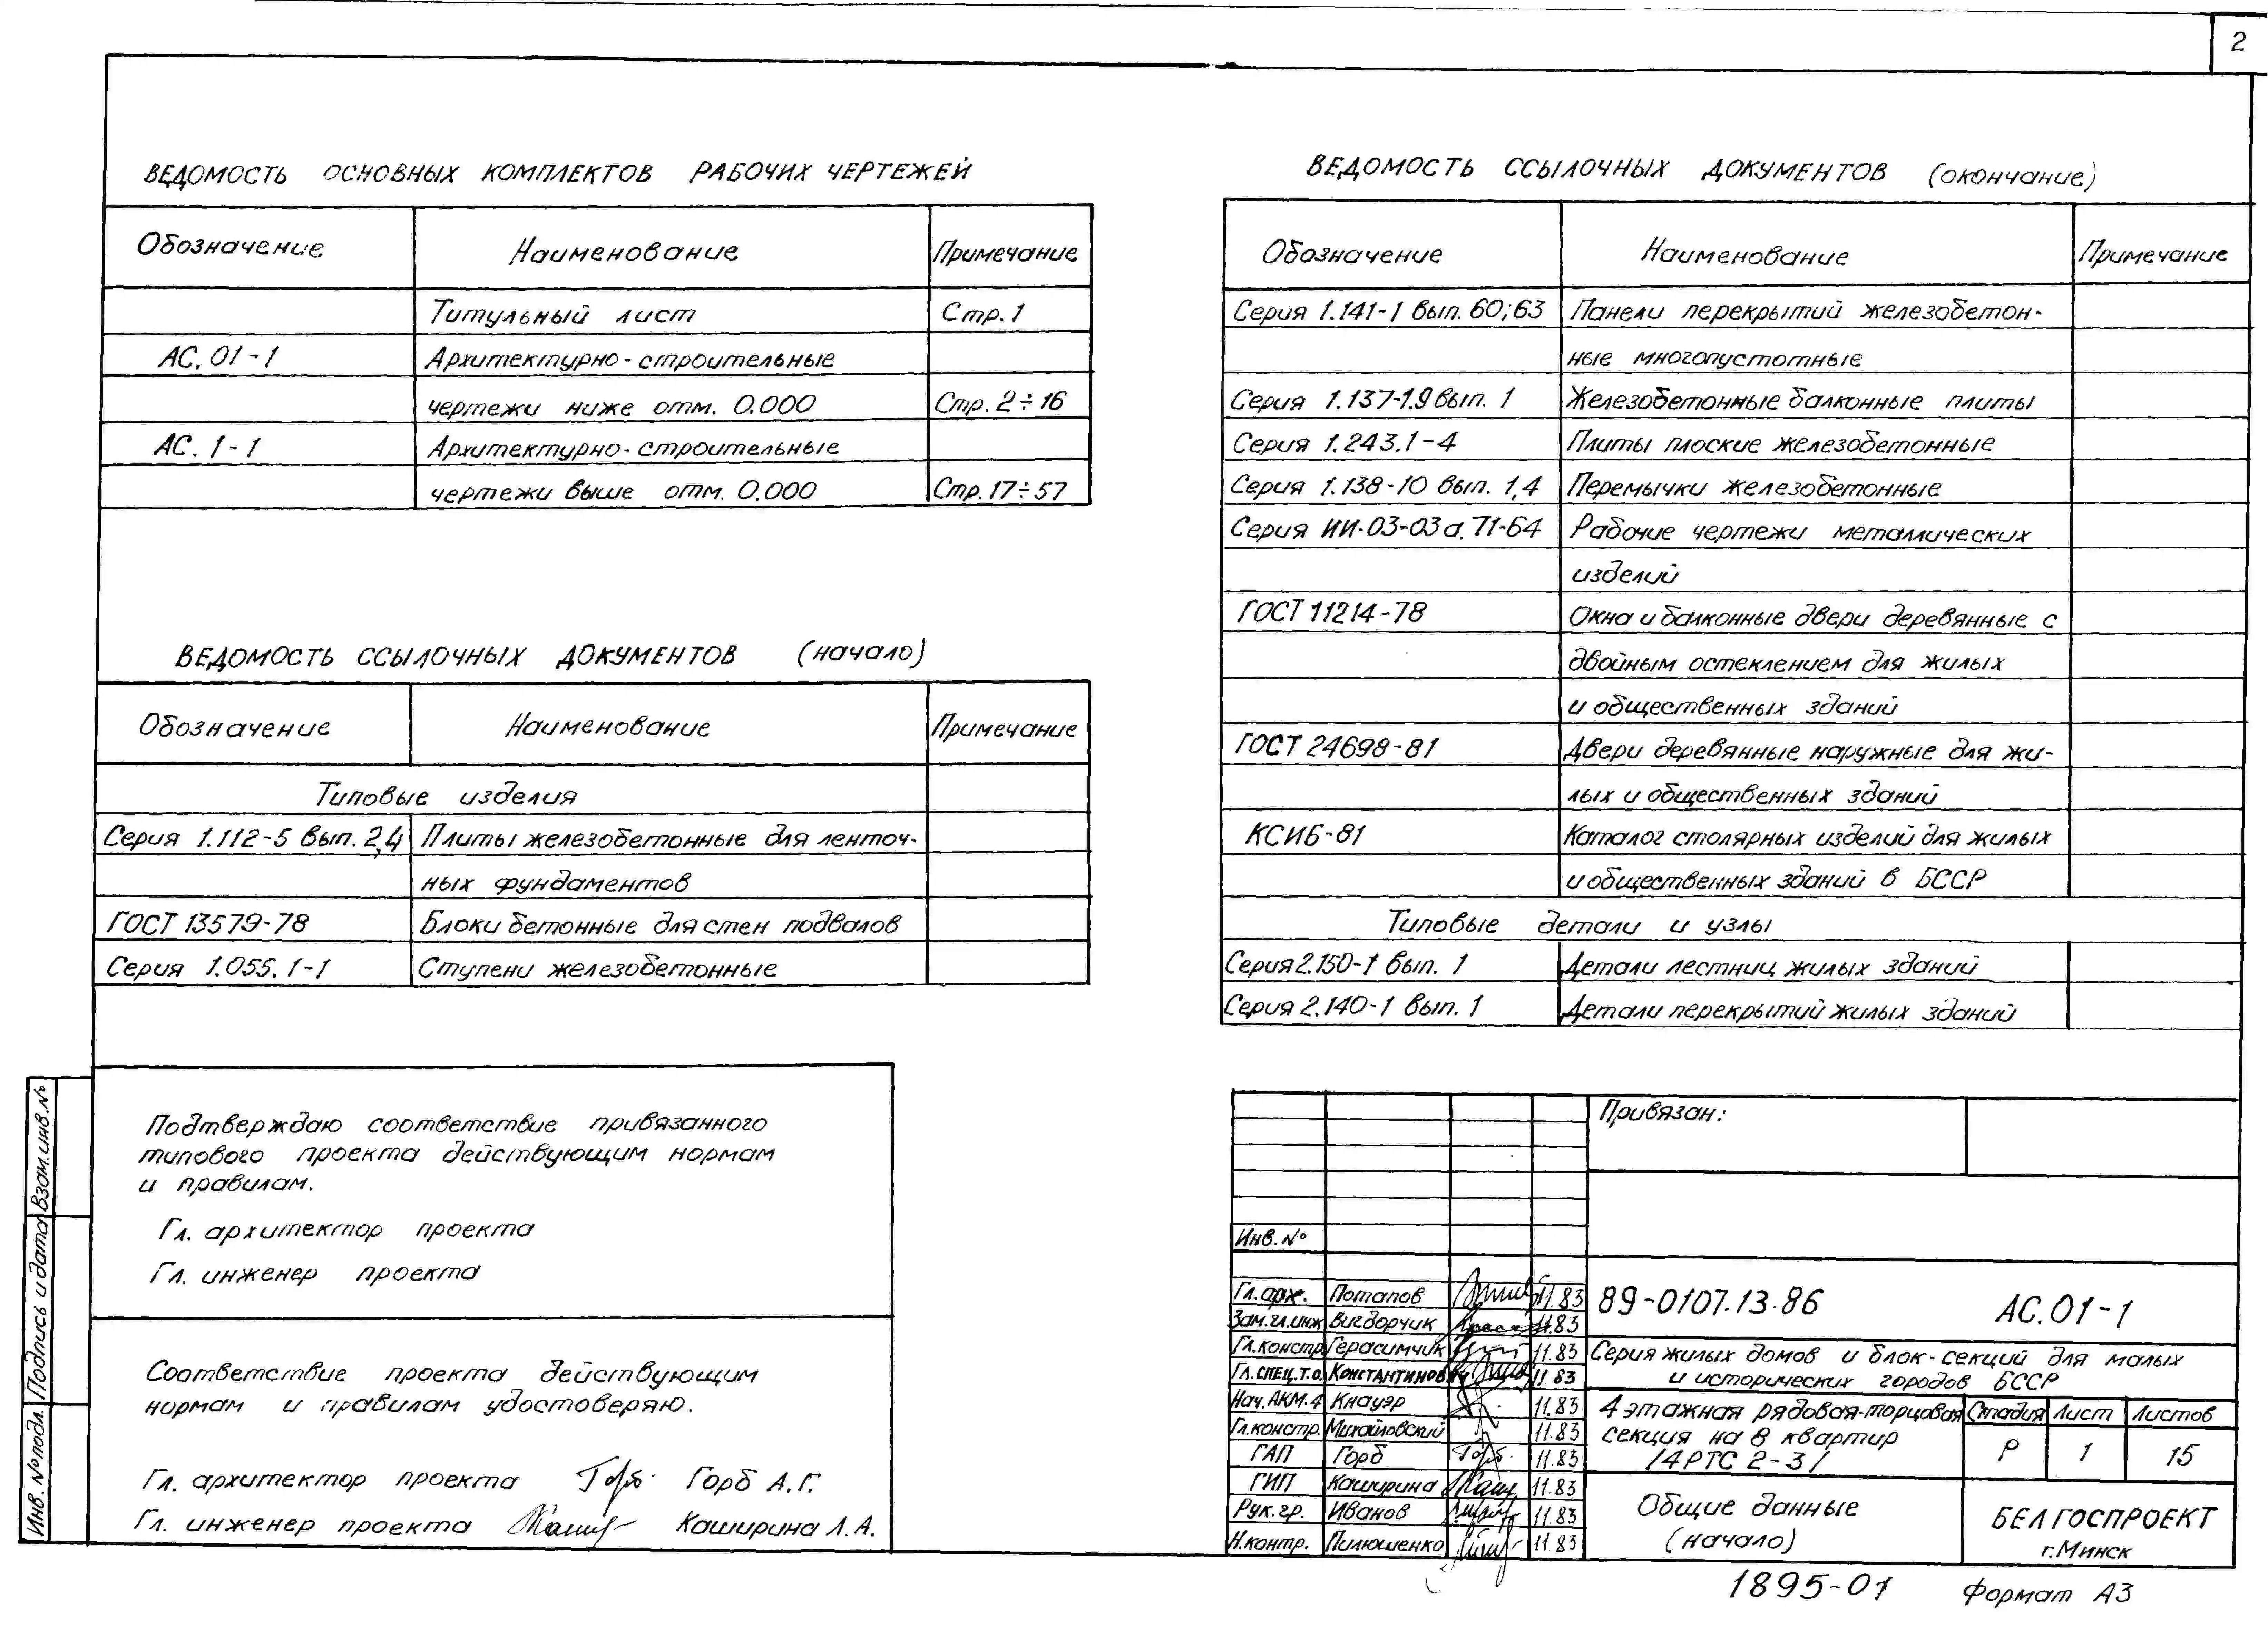 2
ВЕДОМОСТЬ ОСНОВНЫХ КОМПЛЕКТОВ РАБОЧИХ ЧЕРТЕЖЕЙ
Обозначение Наименование Примечание
Титульный лист Стр. 1
АС. 01-1 Архитектурно-строительные
чертежи ниже отм. 0.000 Стр. 2÷16
АС. 1-1 Архитектурно-строительные
чертежи выше отм. 0.000 Стр. 17÷57
ВЕДОМОСТЬ ССЫЛОЧНЫХ ДОКУМЕНТОВ (начало)
Обозначение Наименование Примечание
Типовые изделия
Серия 1.112-5 вып. 2,4 Плиты железобетонные для ленточ-
ных фундаментов
ГОСТ 13579-78 Блоки бетонные для стен подвалов
Серия 1.055.1-1 Ступени железобетонные
ВЕДОМОСТЬ ССЫЛОЧНЫХ ДОКУМЕНТОВ (окончание)
Обозначение Наименование Примечание
Серия 1.141-1 вып. 60; 63 Панели перекрытий железобетон-
ные многопустотные
Серия 1.137-1.9 вып. 1 Железобетонные балконные плиты
Серия 1.243.1-4 Плиты плоские железобетонные
Серия 1.138-10 вып. 1,4 Перемычки железобетонные
Серия ИИ-03-03а.71-64 Рабочие чертежи металлических
изделий
ГОСТ 11214-78 Окна и балконные двери деревянные с
двойным остеклением для жилых
и общественных зданий
ГОСТ 24698-81 Двери деревянные наружные для жи-
лых и общественных зданий
КСИБ-81 Каталог столярных изделий для жилых
и общественных зданий в БССР
Типовые детали и узлы
Серия 2.150-1 вып. 1 Детали лестниц жилых зданий
Серия 2.140-1 вып. 1 Детали перекрытий жилых зданий
Подтверждаю соответствие привязанного
типового проекта действующим нормам
и правилам.
Гл. архитектор проекта
Гл. инженер проекта
Соответствие проекта действующим
нормам и правилам удостоверяю.
Гл. архитектор проекта Горб А.Г.
Гл. инженер проекта Каширина Л.А.
Взам. инв. №
Подпись и дата
Инв. № подл.
Привязан:
Инв. №
Гл. арх. Потапов 11.83
Зам. гл. инж Вигдорчик 11.83
Гл. констр Герасимчик 11.83
Гл. спец. т.о. Константинов 11.83
Нач. АКМ. 4 Кнауэр 11.83
Гл. констр. Михайловский 11.83
ГАП Горб 11.83
ГИП Каширина 11.83
Рук. гр. Иванов 11.83
Н. контр. Пилюшенко 11.83
89-0107.13.86 АС.01-1
Серия жилых домов и блок-секций для малых
и исторических городов БССР
4 этажная рядовая-торцовая
секция на 8 квартир
/4РТС 2-3/
Стадия Лист Листов
Р 1 15
Общие данные
(начало)
БЕЛГОСПРОЕКТ
г. Минск
1895-01 Формат А3